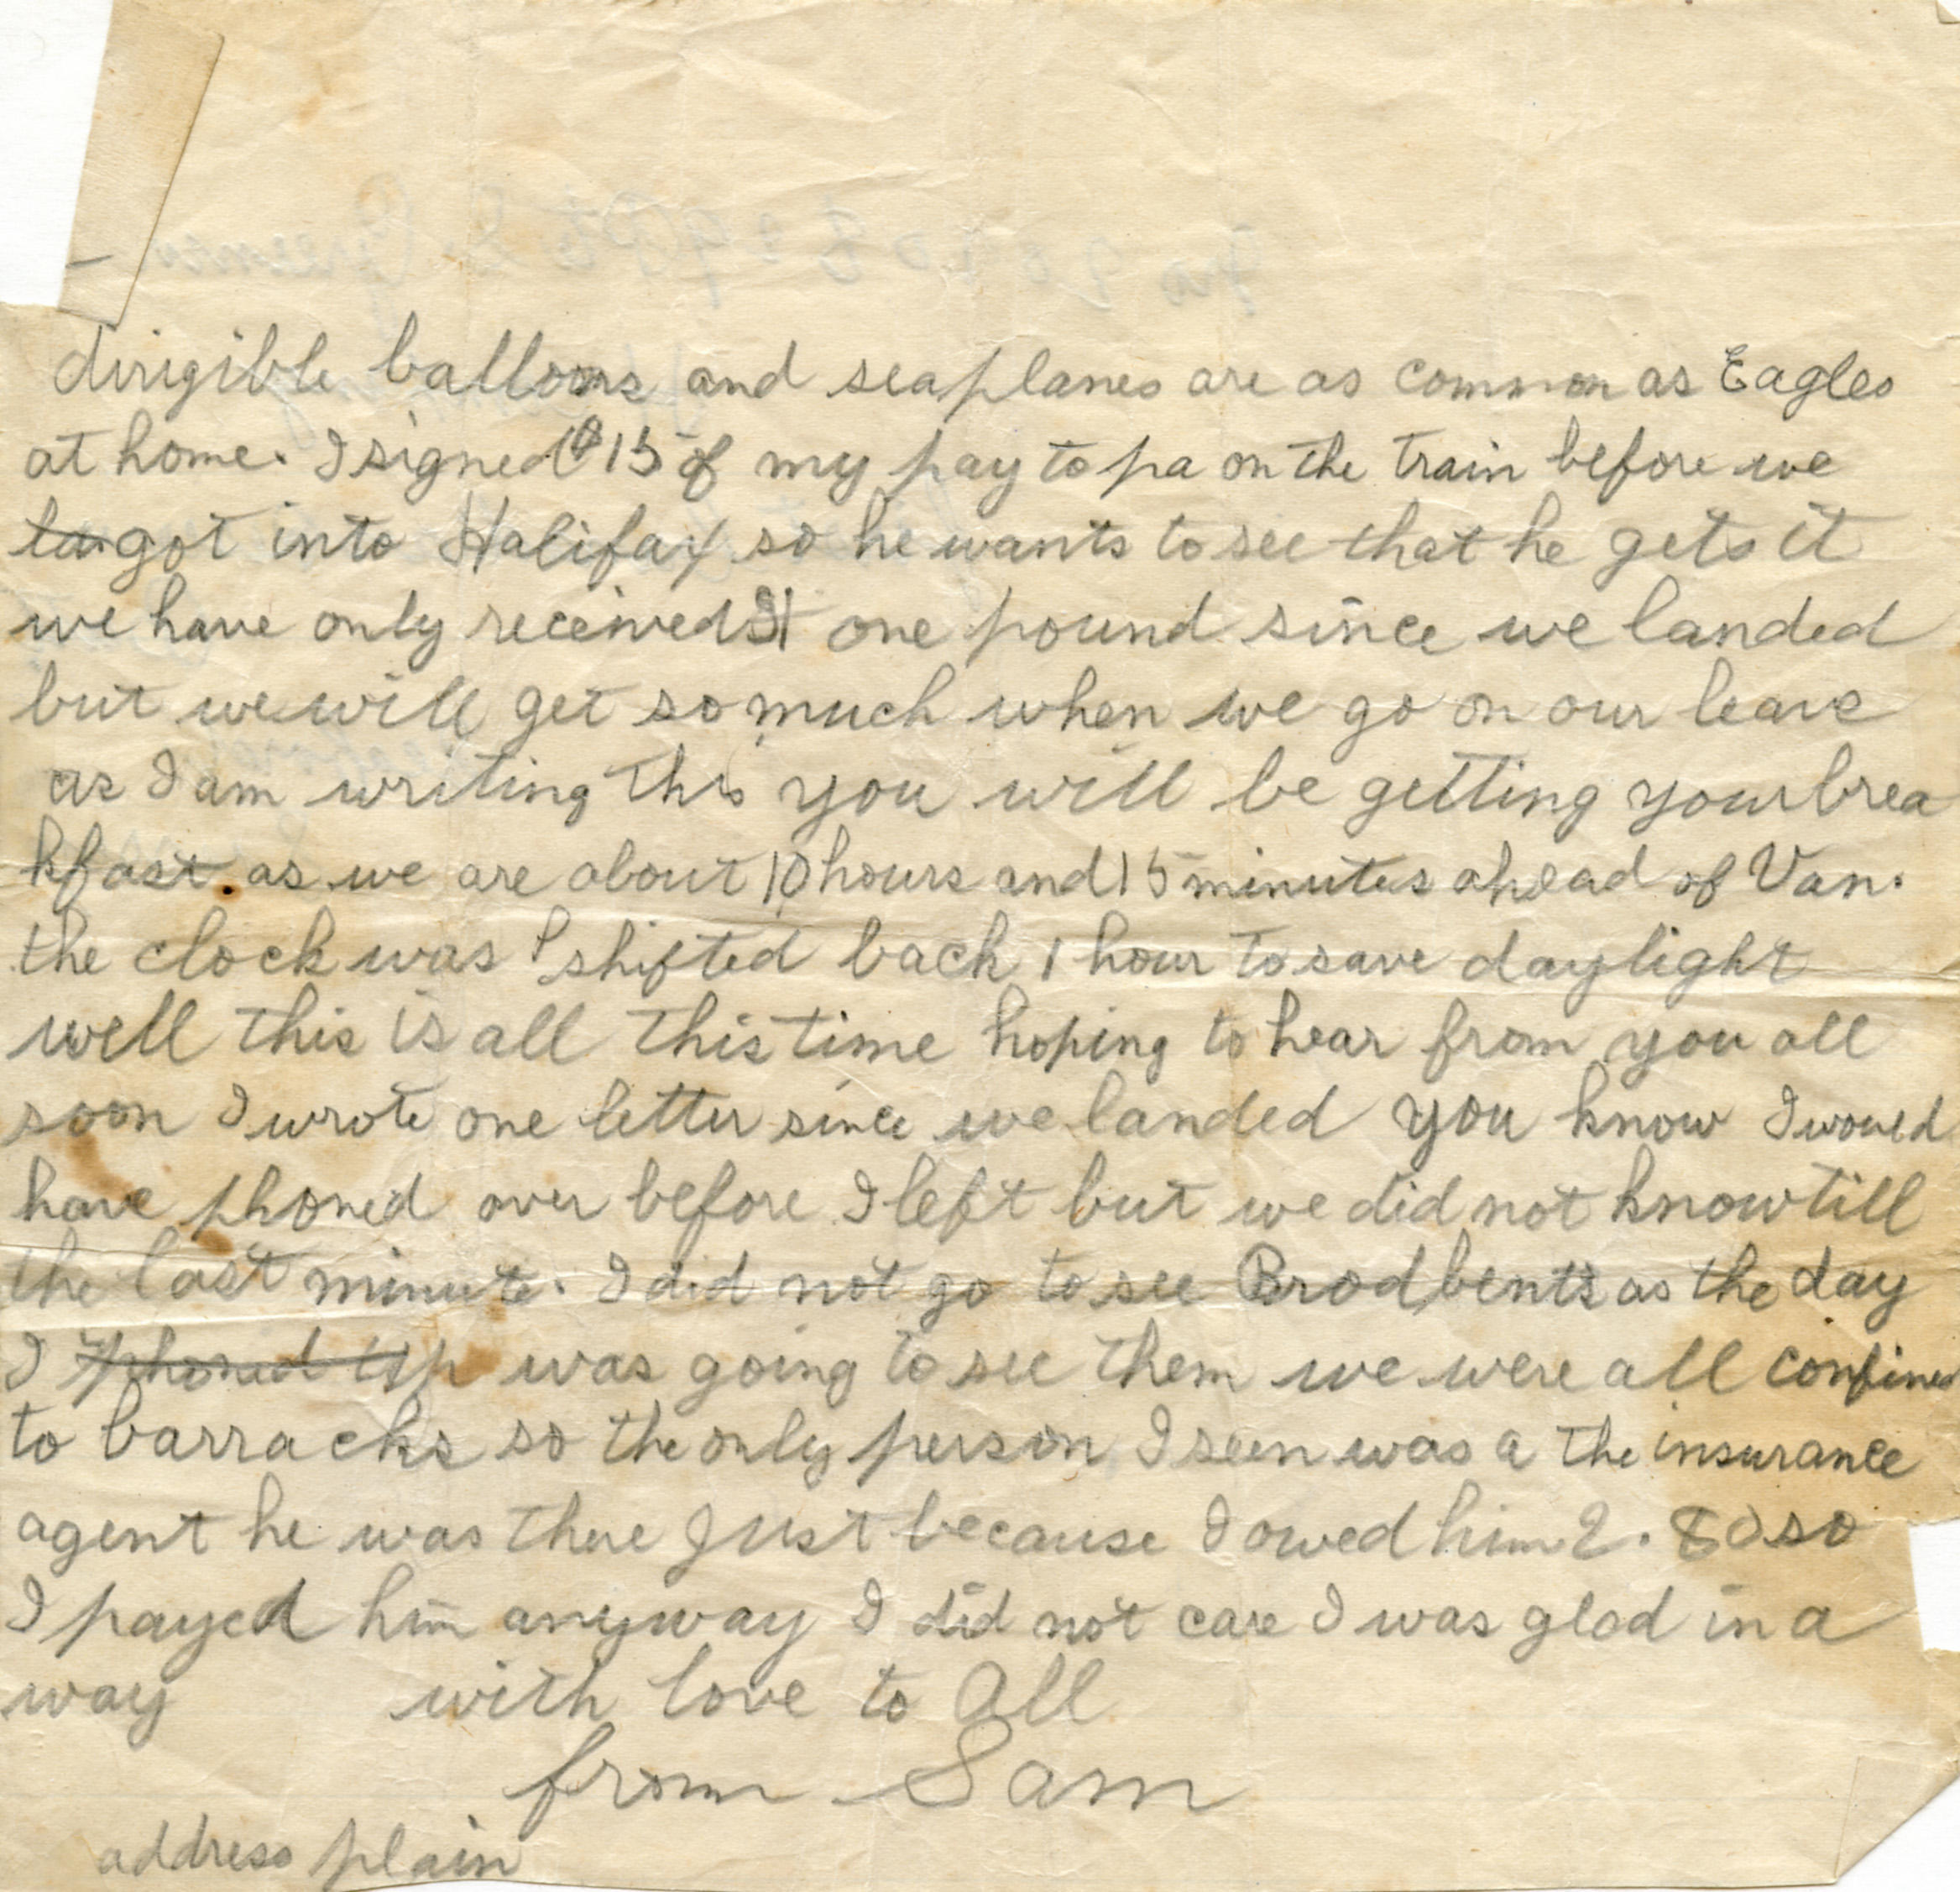 dirigible balloons and seaplanes are as common as Eagles
at home. I signed $15 of my pay to pa on the train before we
got into Halifax so he wants to see that he gets it
we have only received one pound since we landed
but we will get so much when we go on our leave
as I am writing this you will be getting your brea
kfast. as we are about 10 hours and 15 minutes ahead of Van.
the clock was shifted back 1 hour to save daylight
well this is all this time hoping to hear from you all
soon I wrote one letter since we landed you know I would
have phoned over before I left but we did not know till
the last minute. I did not go to see Brodbents as the day
I phoned up was going to see them we were all confined
to barracks so the only person I seen was a the insurance
agent he was there Just because I owed him 2.50 so
I payed him anyway I did not care I was glad in a
way with love to all
from Sam
address plain